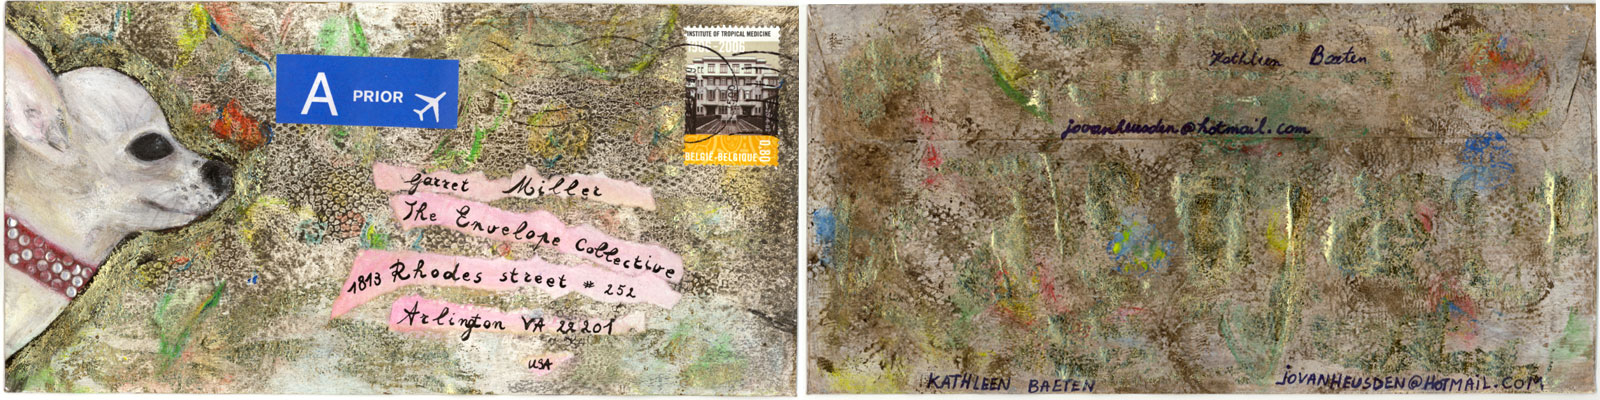 A PRIOR
INSTITUTE OF TROPICAL MEDICINE
1906-2006
BELGIË-BELGIQUE
0.80
Garret Miller
The Envelope Collective
1813 Rhodes street # 252
Arlington VA 22201
USA
Kathleen Baeten
jovanheusden@hotmail.com
KATHLEEN BAETEN
jOVANHEUSDEN@HOTMAIL.COM